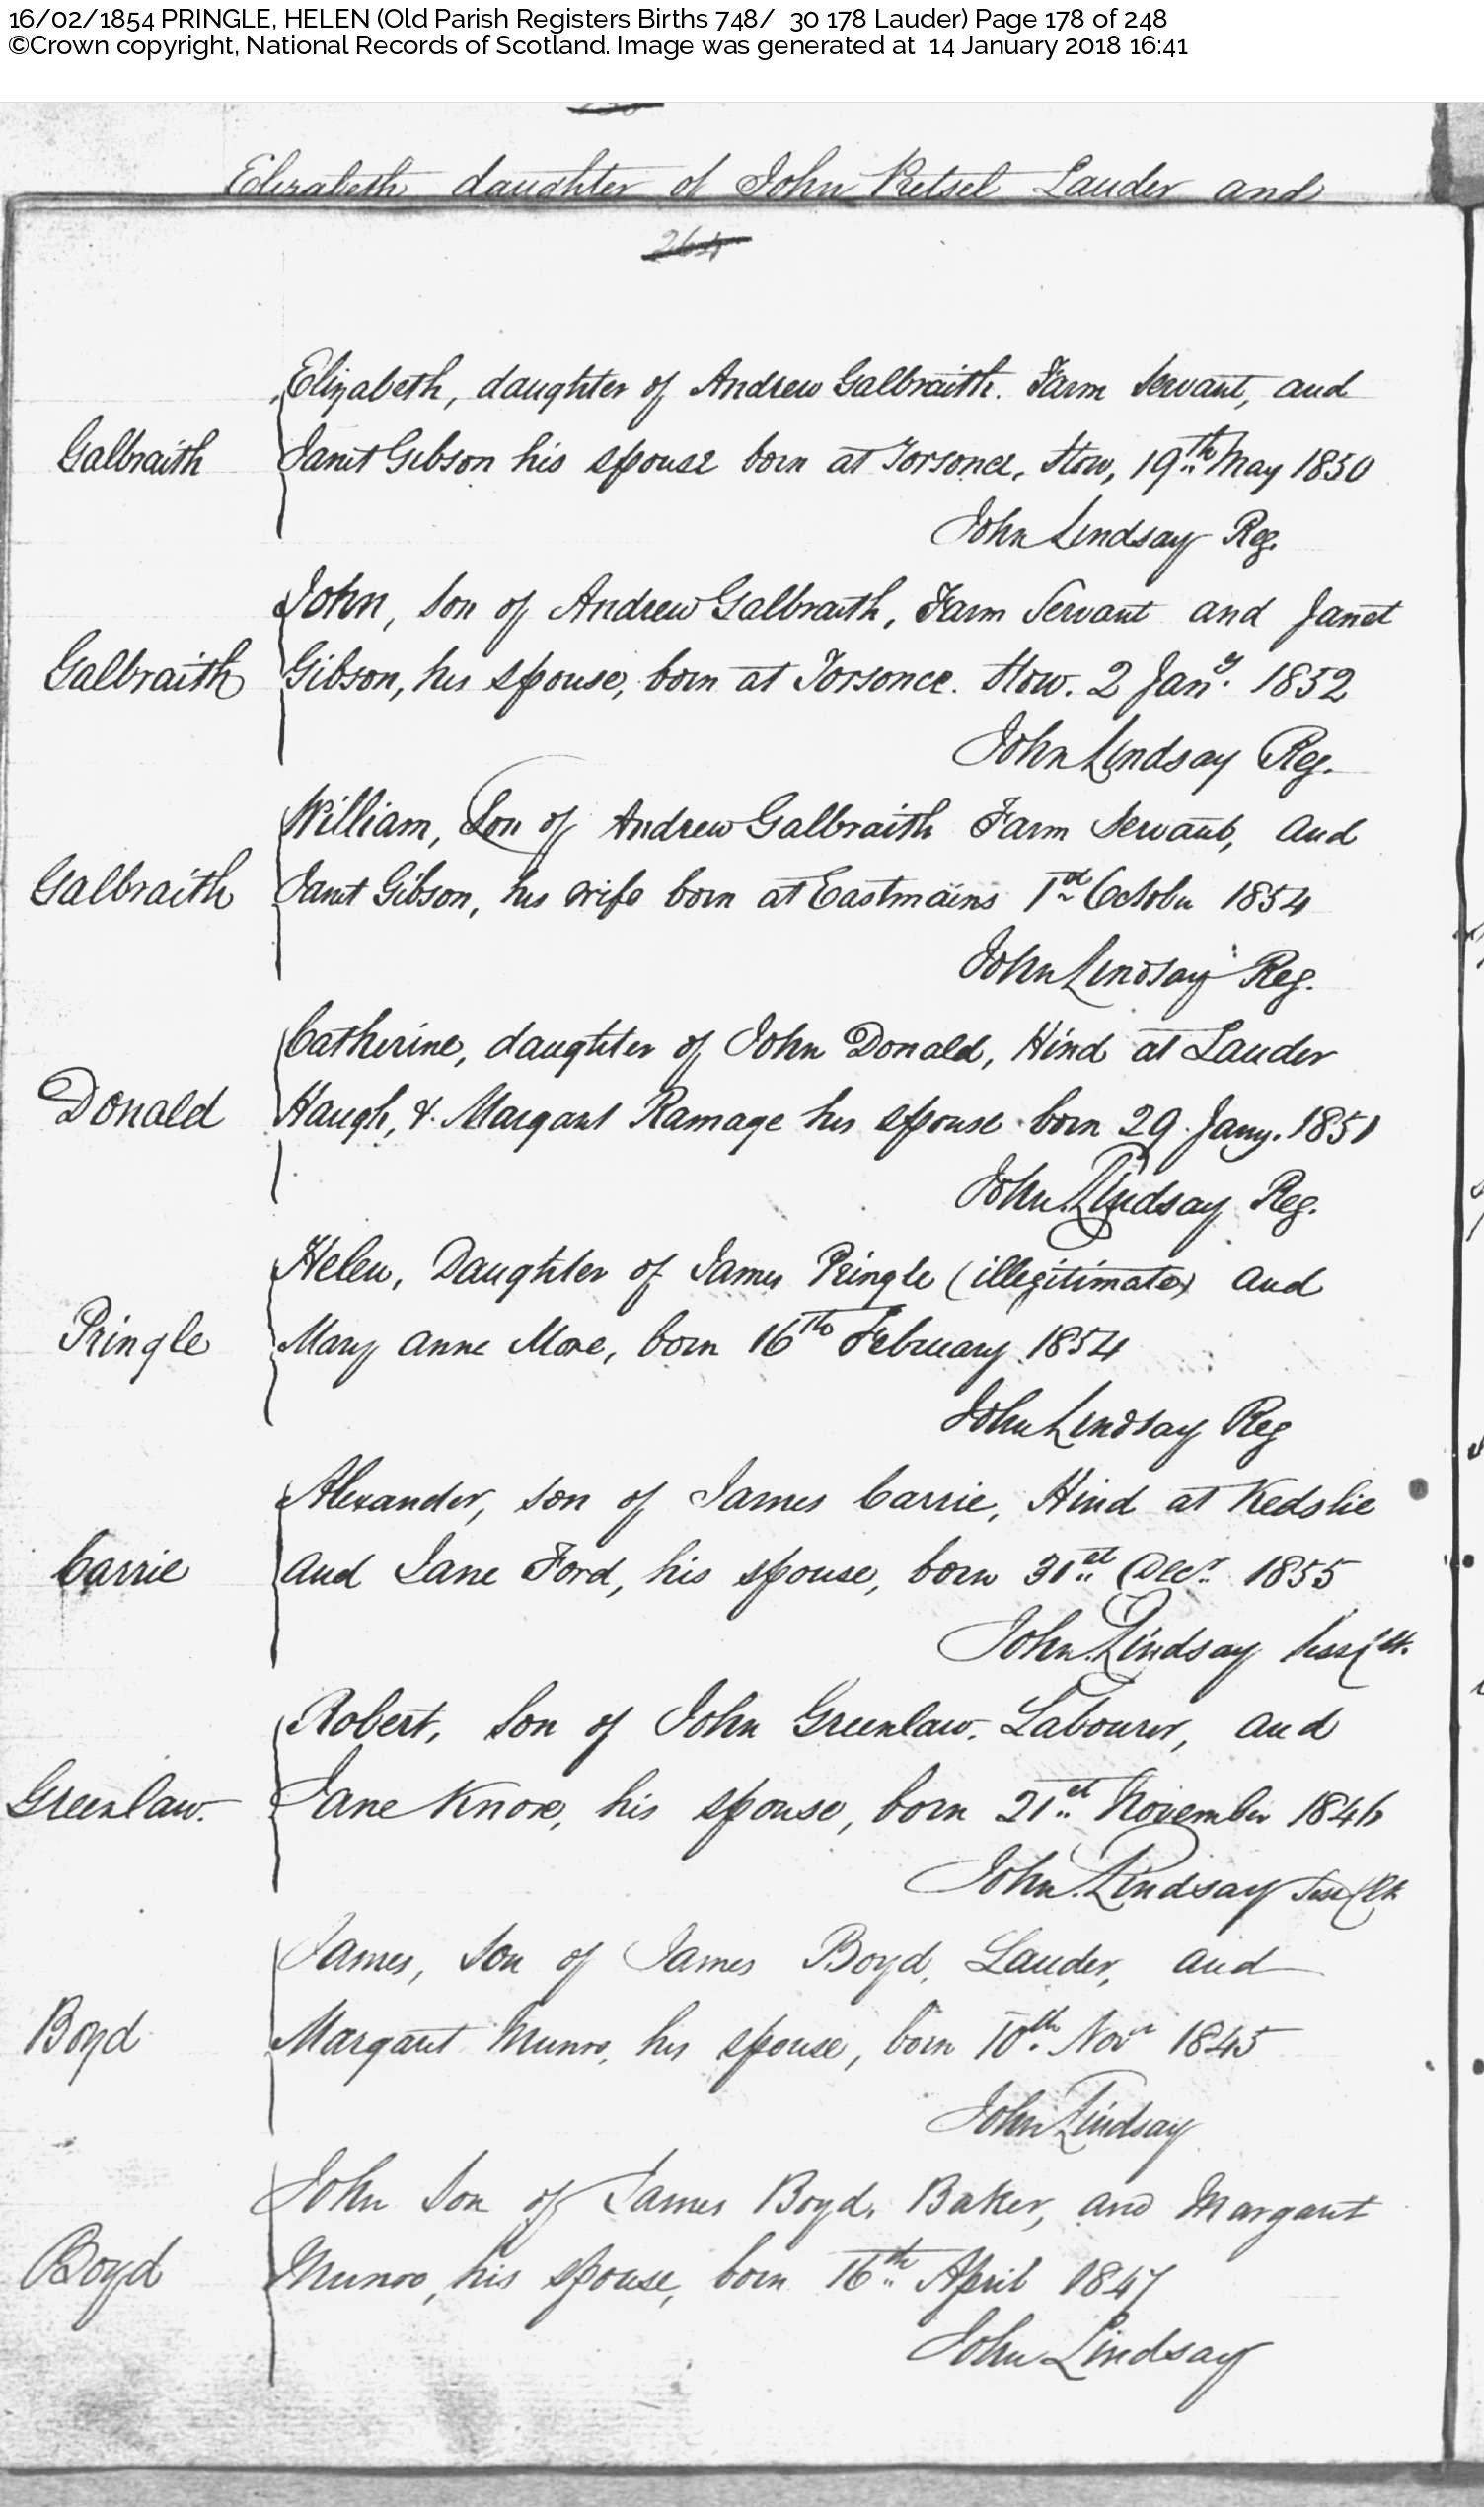 16/02/1854 PRINGLE, HELEN (Old Parish Registers Births 748/ 30 178 Lauder) Page 178 of 248
©Crown copyright, National Records of Scotland. Image was generated at 14 January 2018 16:41
Elizabeth daughter of John Lauder and
264
Elizabeth, daughter of Andrew Galbraith. Farm Servant, and
Galbraith Janet Gibson his spouse born at Torsonce, Stow, 19th May 1850
John Lindsay Reg.
John, Son of Andrew Galbraith, Farm Servant and Janet
Galbraith Gibson, his spouse, born at Torsonce. Stow. 2 Jany. 1852
John Lindsay Reg.
William, Son of Andrew Galbraith Farm Servant, and
Galbraith Janet Gibson, his wife born at Eastmains 1st October 1854
John Lindsay Reg.
Catherine, daughter of John Donald, Hind at Lauder
Donald Haugh, & Margaret Ramage his spouse born 29. Jany. 1851
John Lindsay Reg.
Helen, Daughter of James Pringle (illegitimate) and
Pringle Mary Anne More, born 16th February 1854
John Lindsay Reg
Alexander, son of James Carrie, Hind at Kedslie
Carrie and Jane Ford, his spouse, born 31st Decr. 1855
John Lindsay Sess Clk.
Robert, Son of John Greenlaw. Labourer, and
Greenlaw. Jane Knox, his spouse, born 21st November 1846
John Lindsay Sess Clk
James, Son of James Boyd, Lauder, and
Boyd Margaret Munro, his spouse, born 10th Novr 1845
John Lindsay
John Son of James Boyd, Baker, and Margaret
Boyd Munro, his spouse, born 16th April 1847
John Lindsay